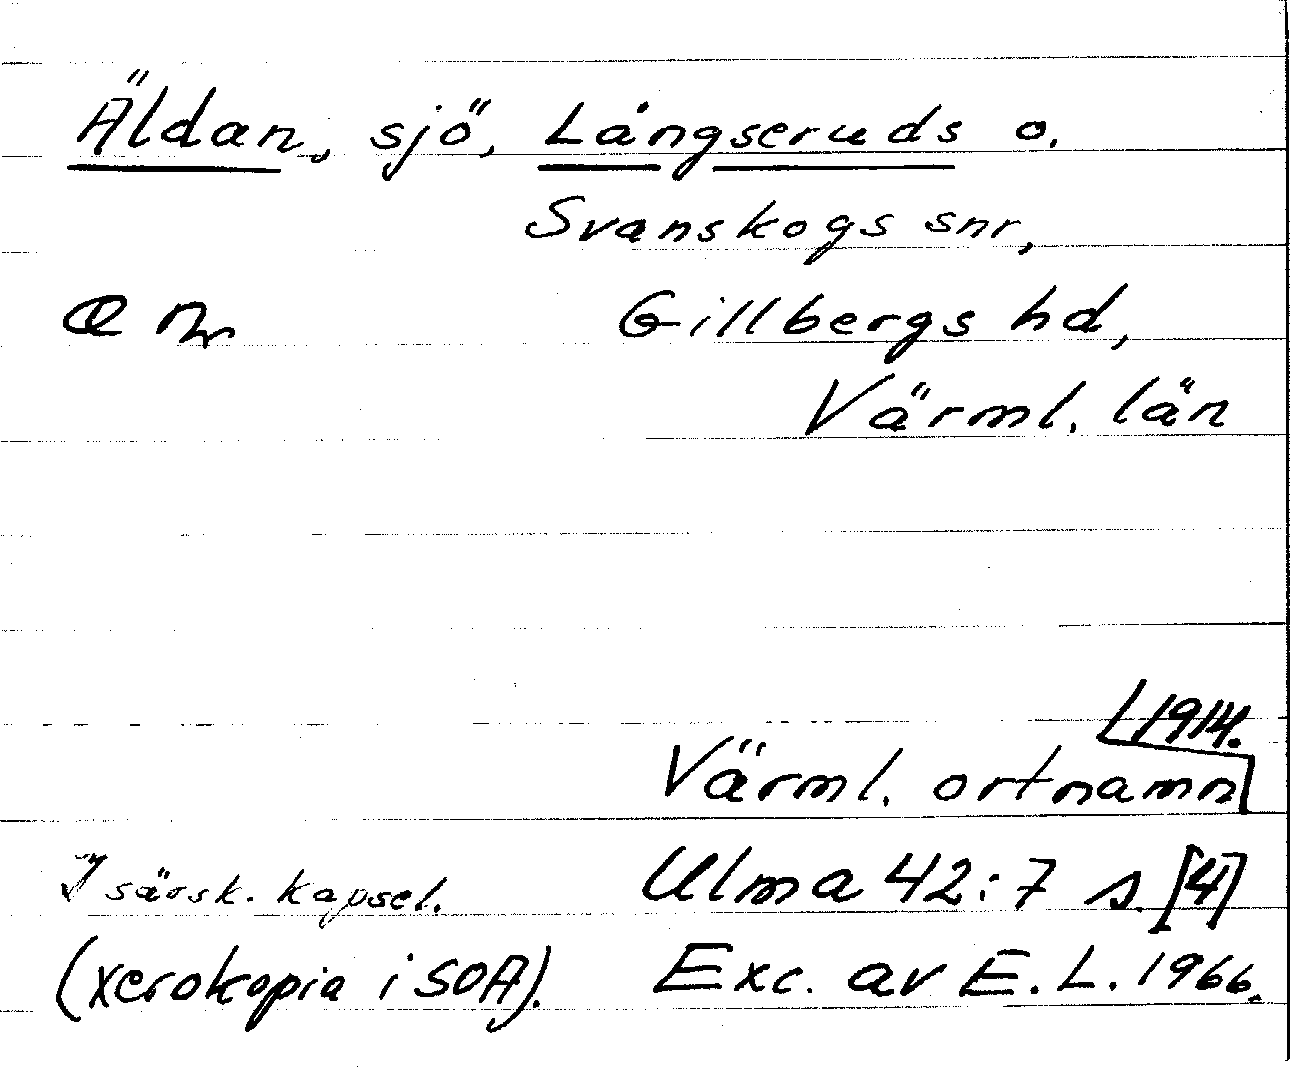 Äldan, sjö, Långseruds o.
Svanskogs snr,
Gillbergs hd,
Värml. län
1914.
Värml. ortnamn
I särsk. kapsel. Ulma 42:7 s. [4]
(xerokopia i SOA). Exc. av E. L. 1966.